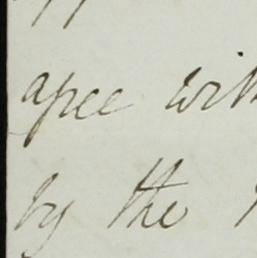 agree with
by the